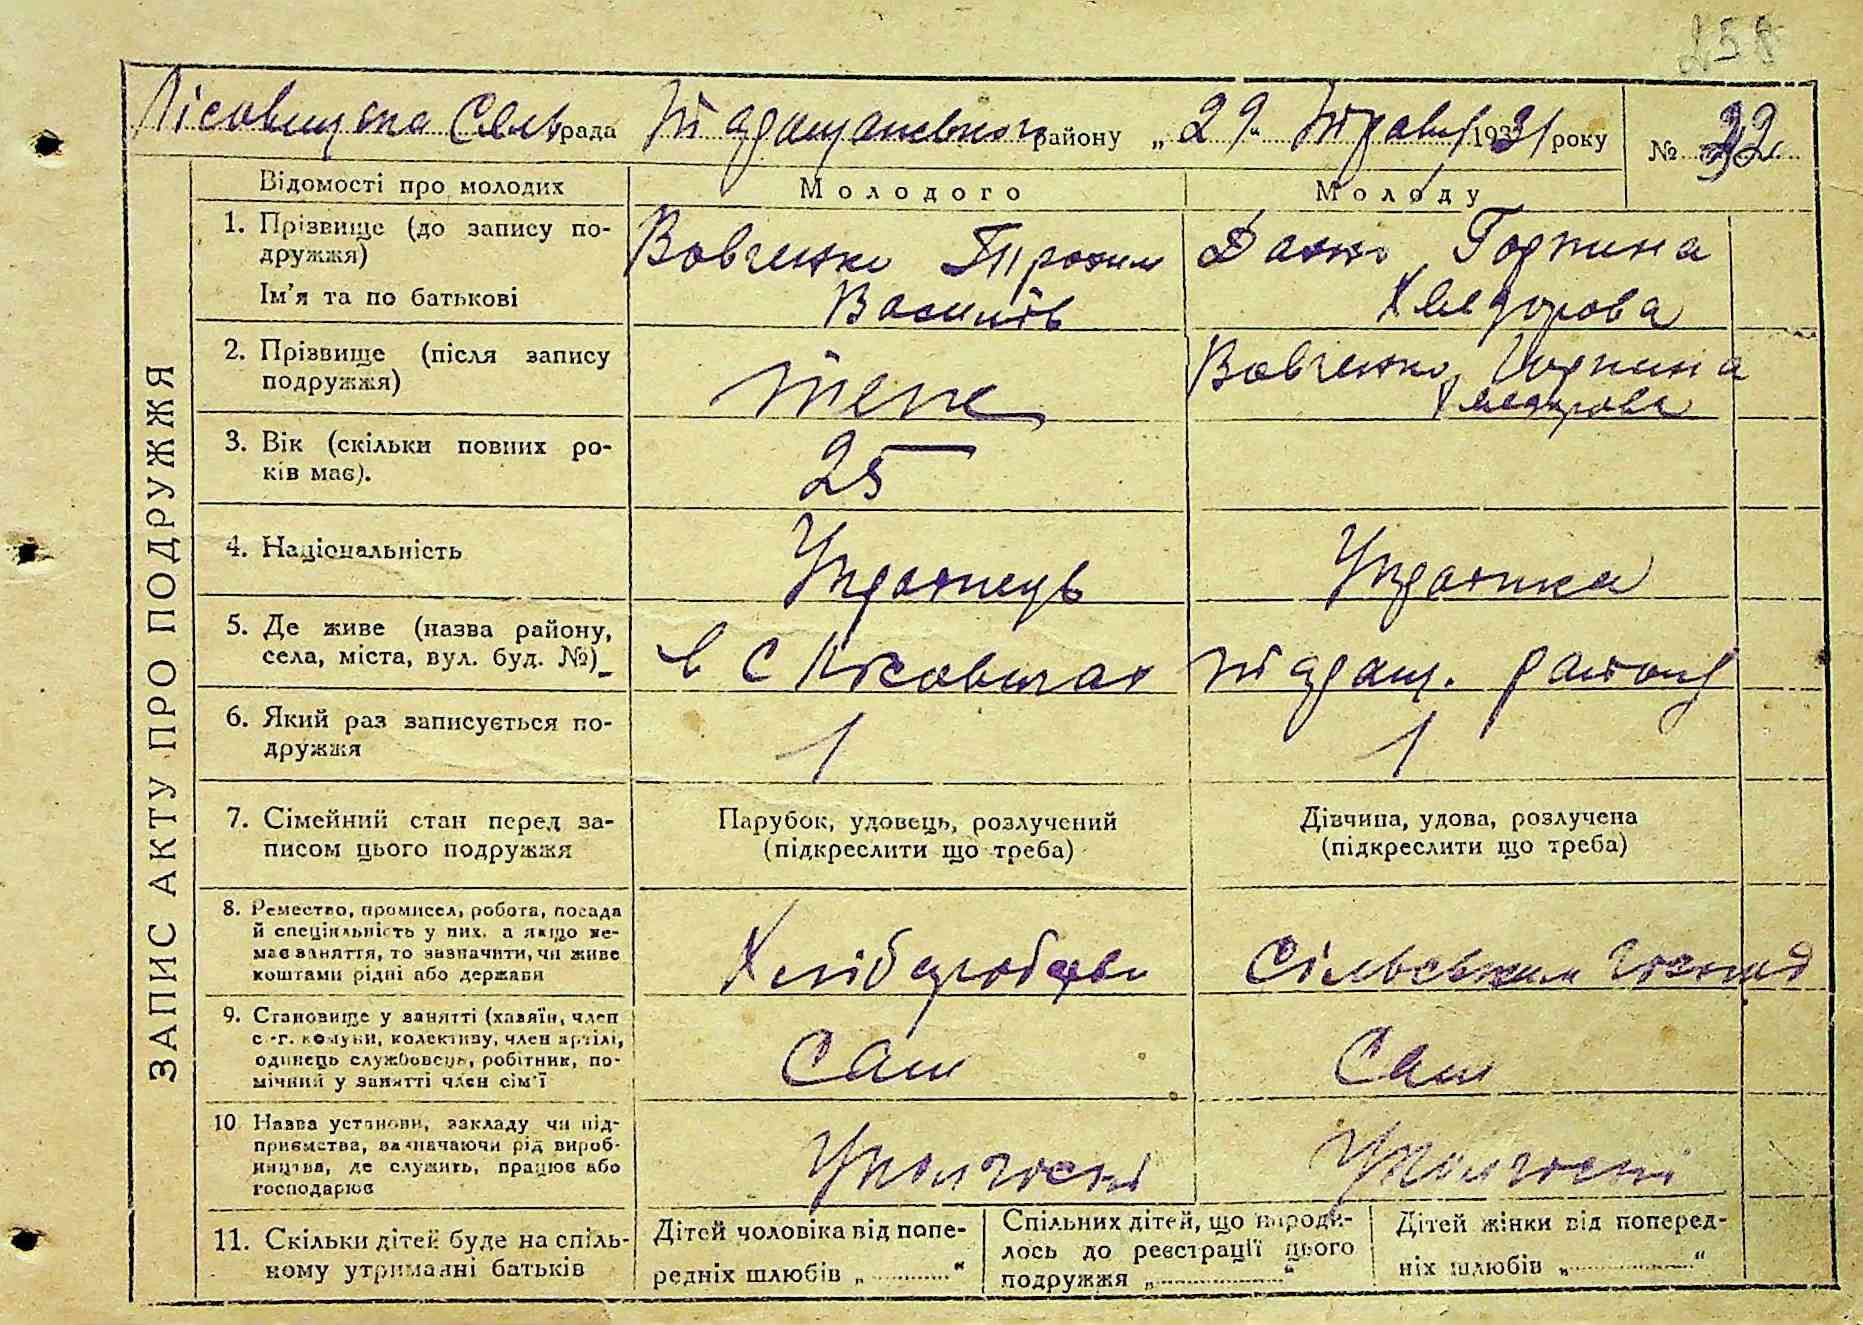 258
Лісовицька Сельрада Таращанського району „29" Травня 1931 року № 32
Відомості про молодих
Молодого
Молоду
ЗАПИС АКТУ ПРО ПОДРУЖЖЯ
1. Прізвище (до запису по-
дружжя)
Ім'я та по батькові
Вовченко Трохим
Василів
Дахно Горпина
Хведорова
2. Прізвище (після запису
подружжя)
теж
Вовченко Горпина
Хведорова
3. Вік (скільки повних ро-
ків має).
25
4. Національність
Українець
Українка
5. Де живе (назва району,
села, міста, вул. буд. №)
в с Лісовичах Таращ. району
6. Який раз записується по-
дружжя
1
1
7. Сімейний стан перед за-
писом цього подружжя
Парубок, удовець, розлучений
(підкреслити що треба)
Дівчина, удова, розлучена
(підкреслити що треба)
8. Ремество, промисел, робота, посада
й спеціяльність у них, а якщо не-
має заняття, то зазначити, чи живе
коштами рідні або держави
Хлібороб
Сільським господ
9. Становище у занятті (хазяїн, член
с.-г. комуни, колективу, член артілі,
одинець службовець, робітник, по-
мічний у занятті член сім'ї
Сам
Сам
10 Назва установи, закладу чи під-
приємства, зазначаючи рід вироб-
ництва, де служить, працює або
господарює
11. Скільки дітей буде на спіль-
ному утриманні батьків
Дітей чоловіка від попе-
редніх шлюбів „ "
Спільних дітей, що народи-
лось до реєстрації цього
подружжя „ "
Дітей жінки від поперед-
ніх шлюбів „ "